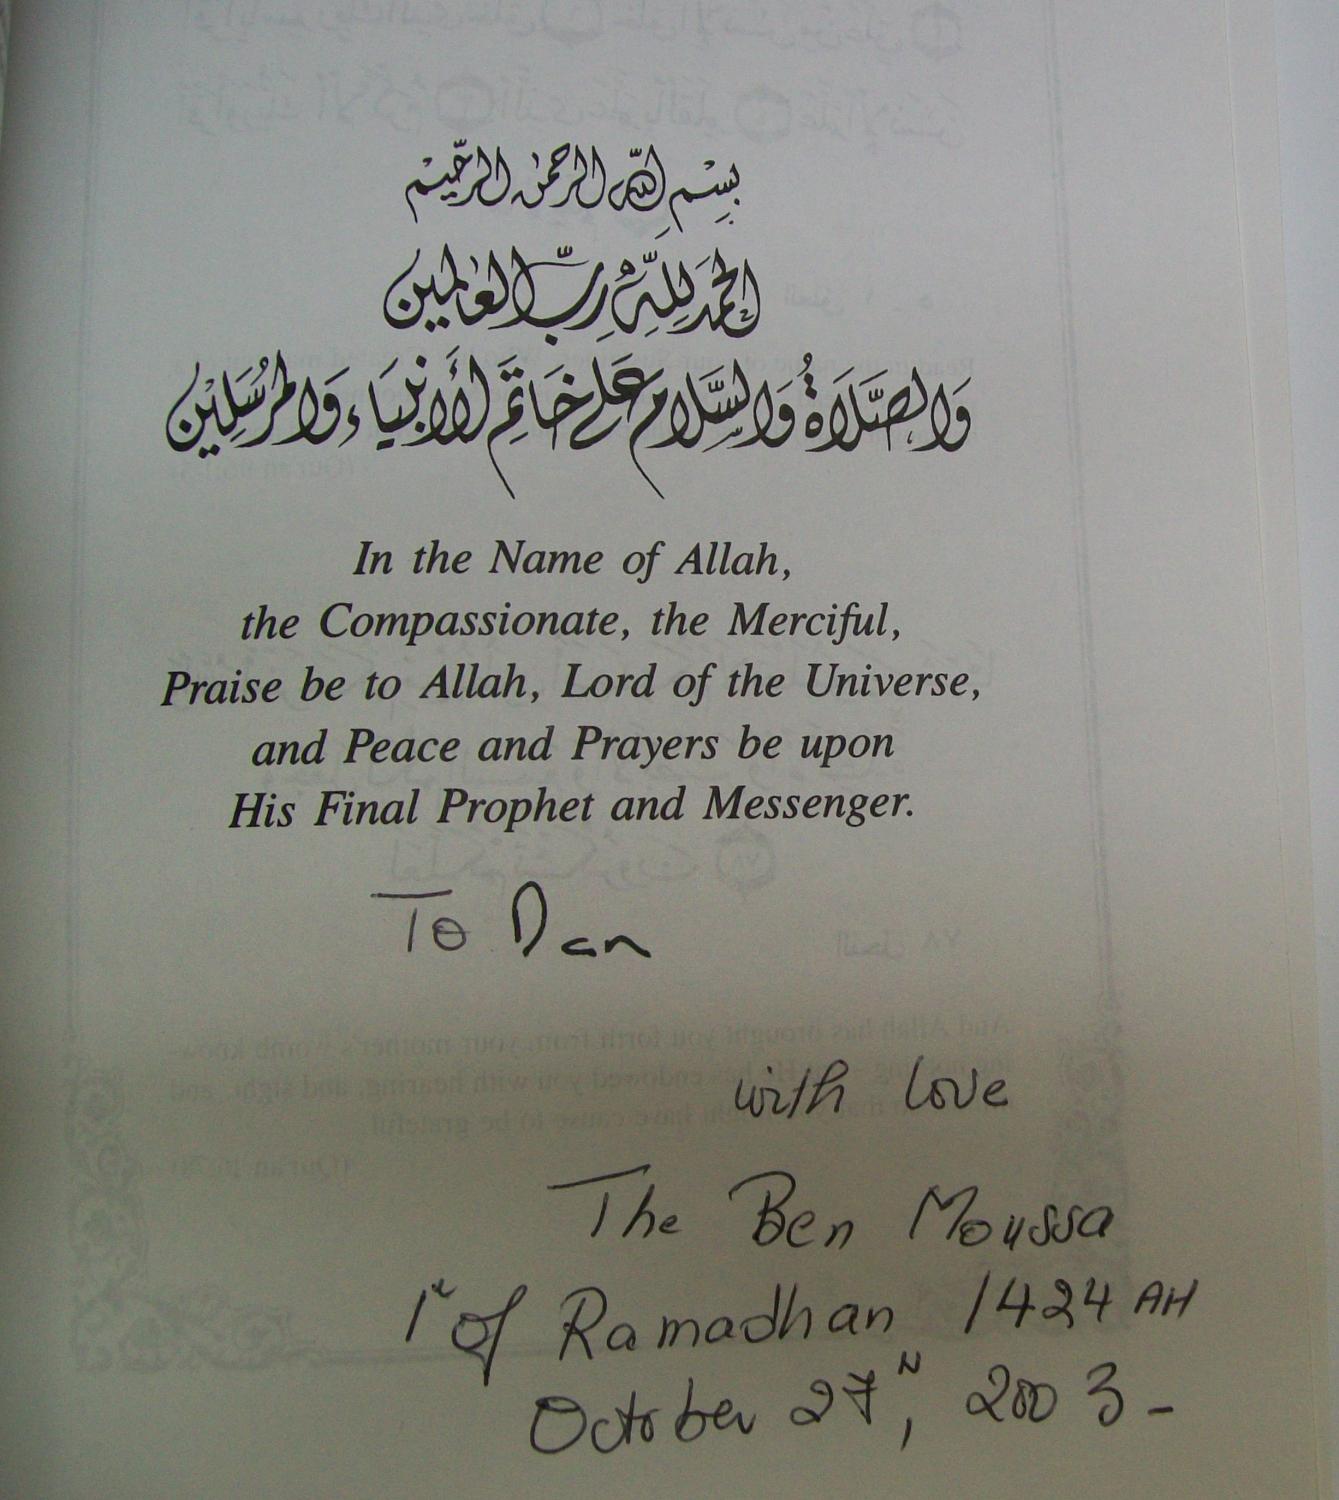 بِسْمِ اللهِ الرَّحْمٰنِ الرَّحِيْمِ
الْحَمْدُ لِلّٰهِ رَبِّ الْعَالَمِيْن
وَالصَّلَاةُ وَالسَّلَامُ عَلَى خَاتَمِ الْأَنْبِيَاءِ وَالْمُرْسَلِيْن
In the Name of Allah,
the Compassionate, the Merciful,
Praise be to Allah, Lord of the Universe,
and Peace and Prayers be upon
His Final Prophet and Messenger.
To Dan
with love
The Ben Moussa
of Ramadhan 1424 AH
October 27, 2003 -